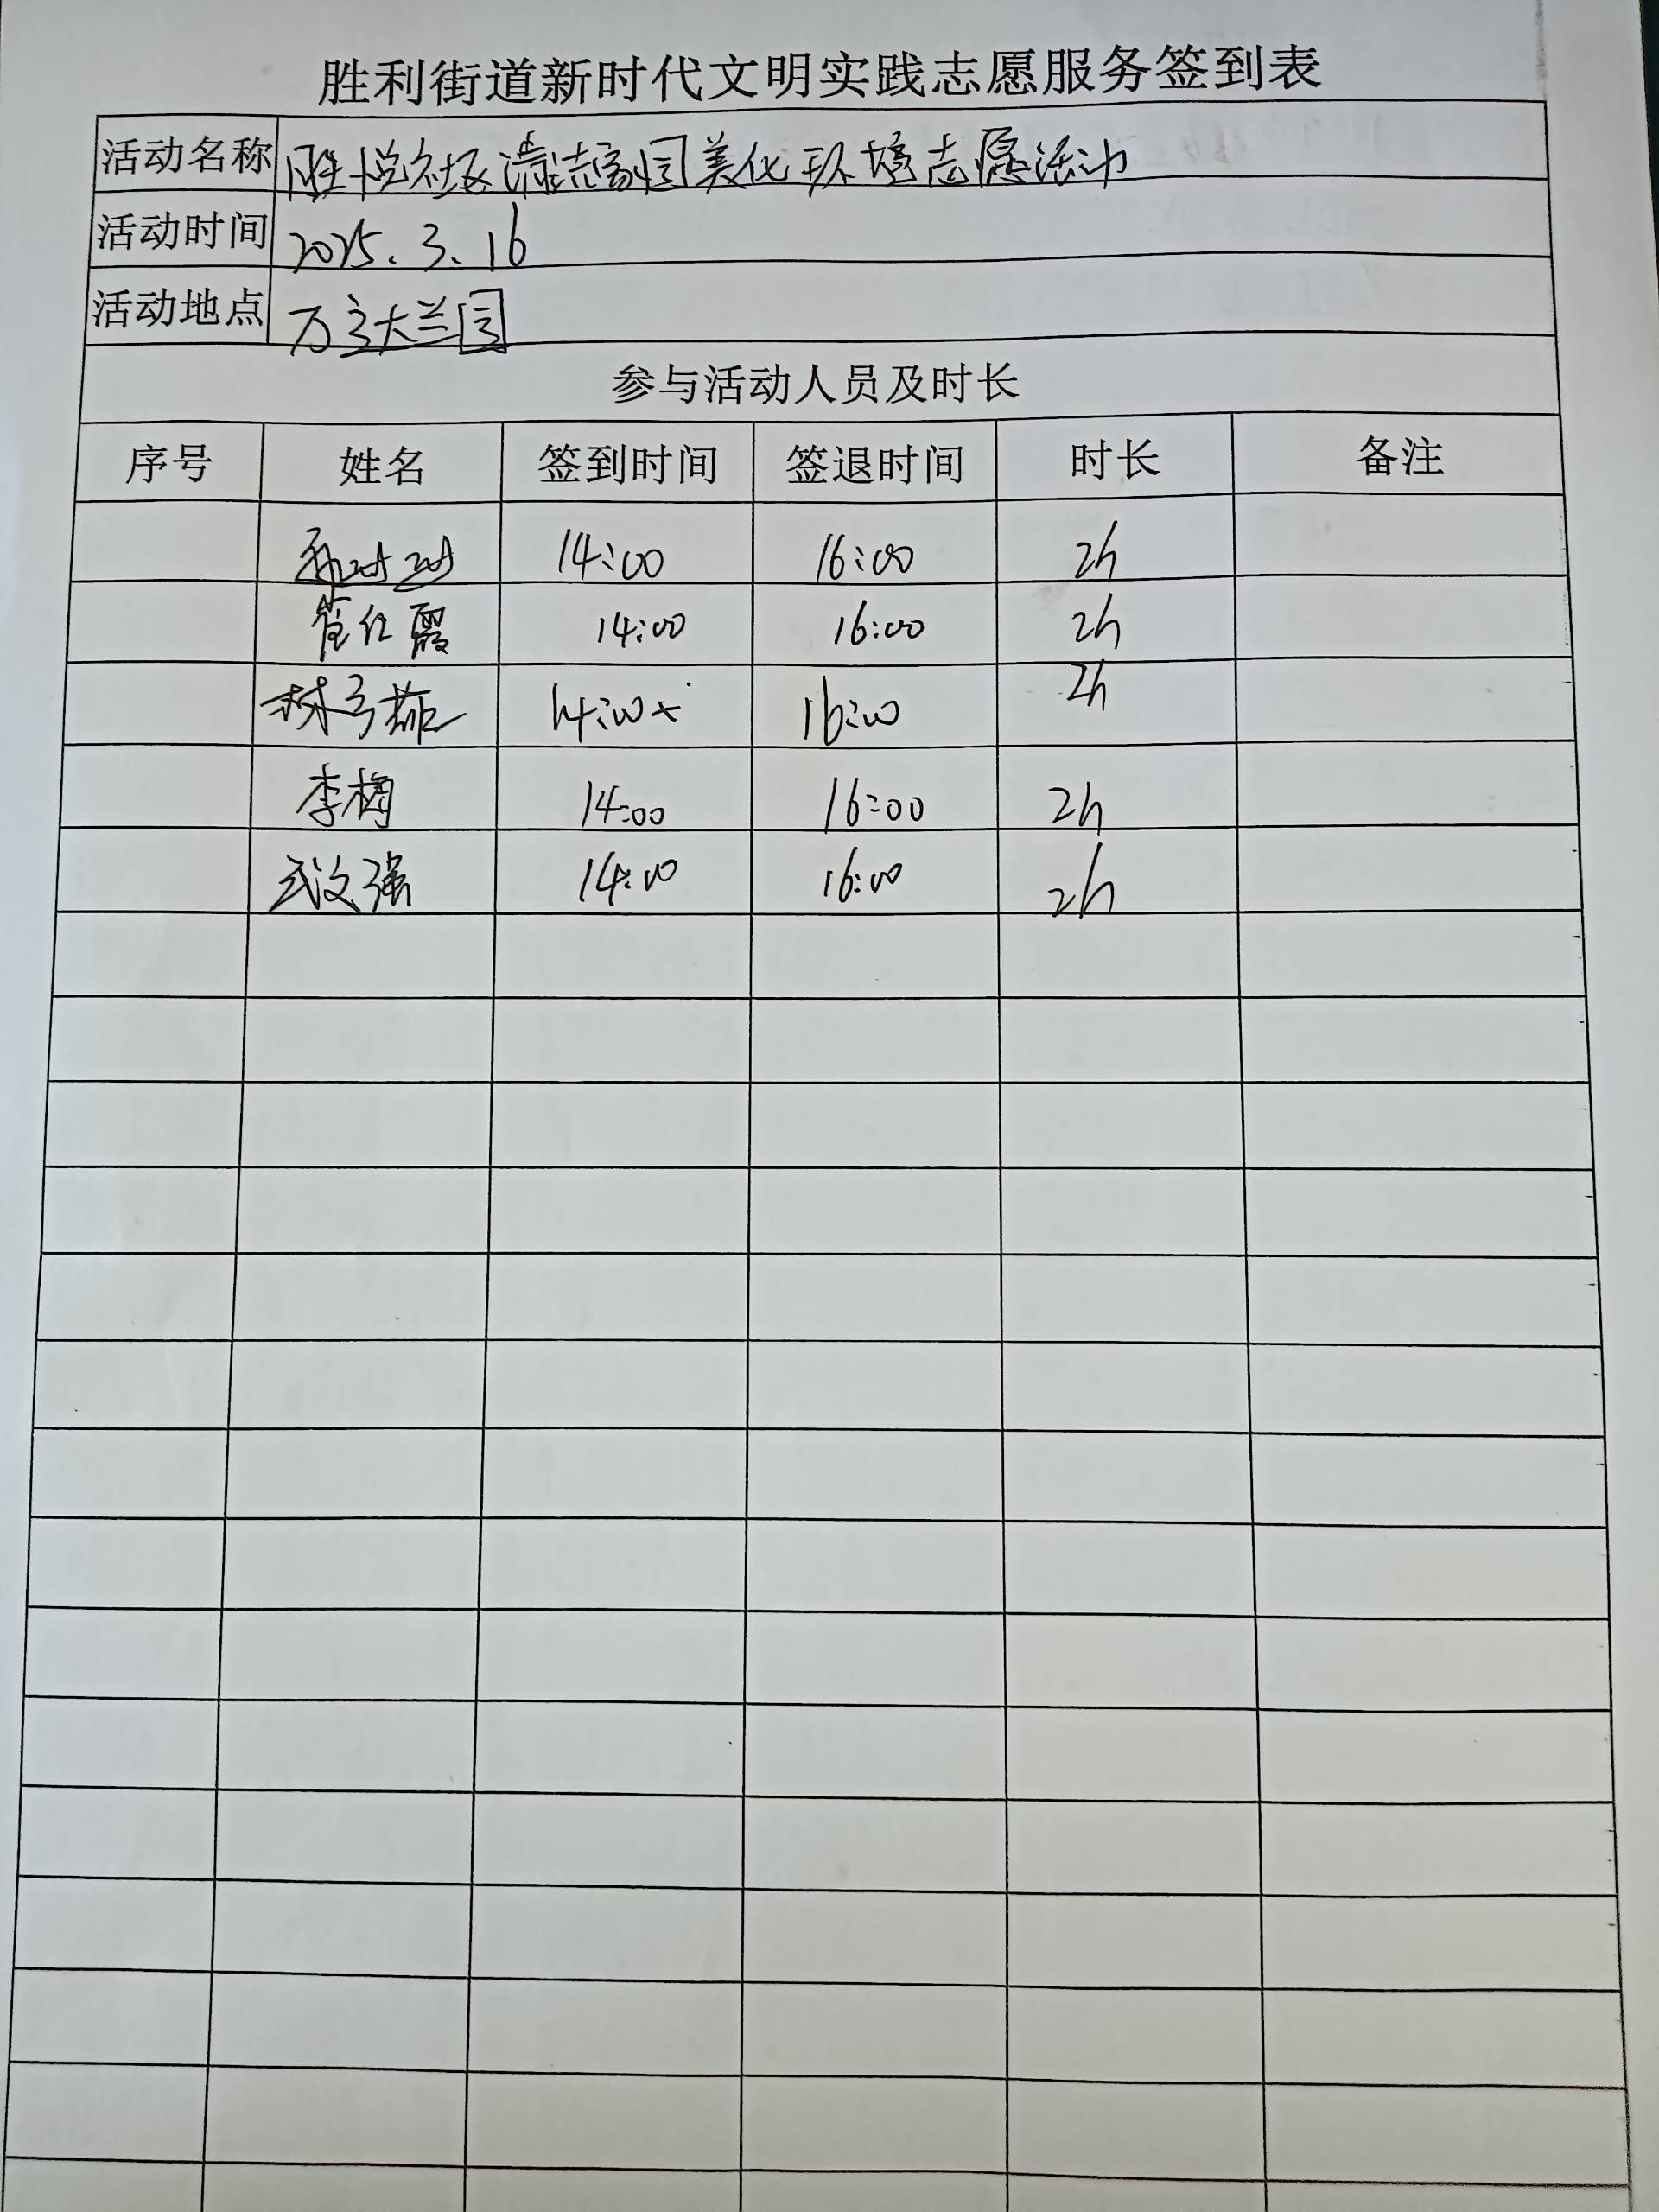 胜利街道新时代文明实践志愿服务签到表
活动名称 胜悦社区清洁家园美化环境志愿活动
活动时间 2025.3.16
活动地点 万方大兰园
参与活动人员及时长
序号 姓名 签到时间 签退时间 时长 备注
14:00 16:00 2h
14:00 16:00 2h
14:00 16:00 2h
李梅 14:00 16:00 2h
武文强 14:00 16:00 2h